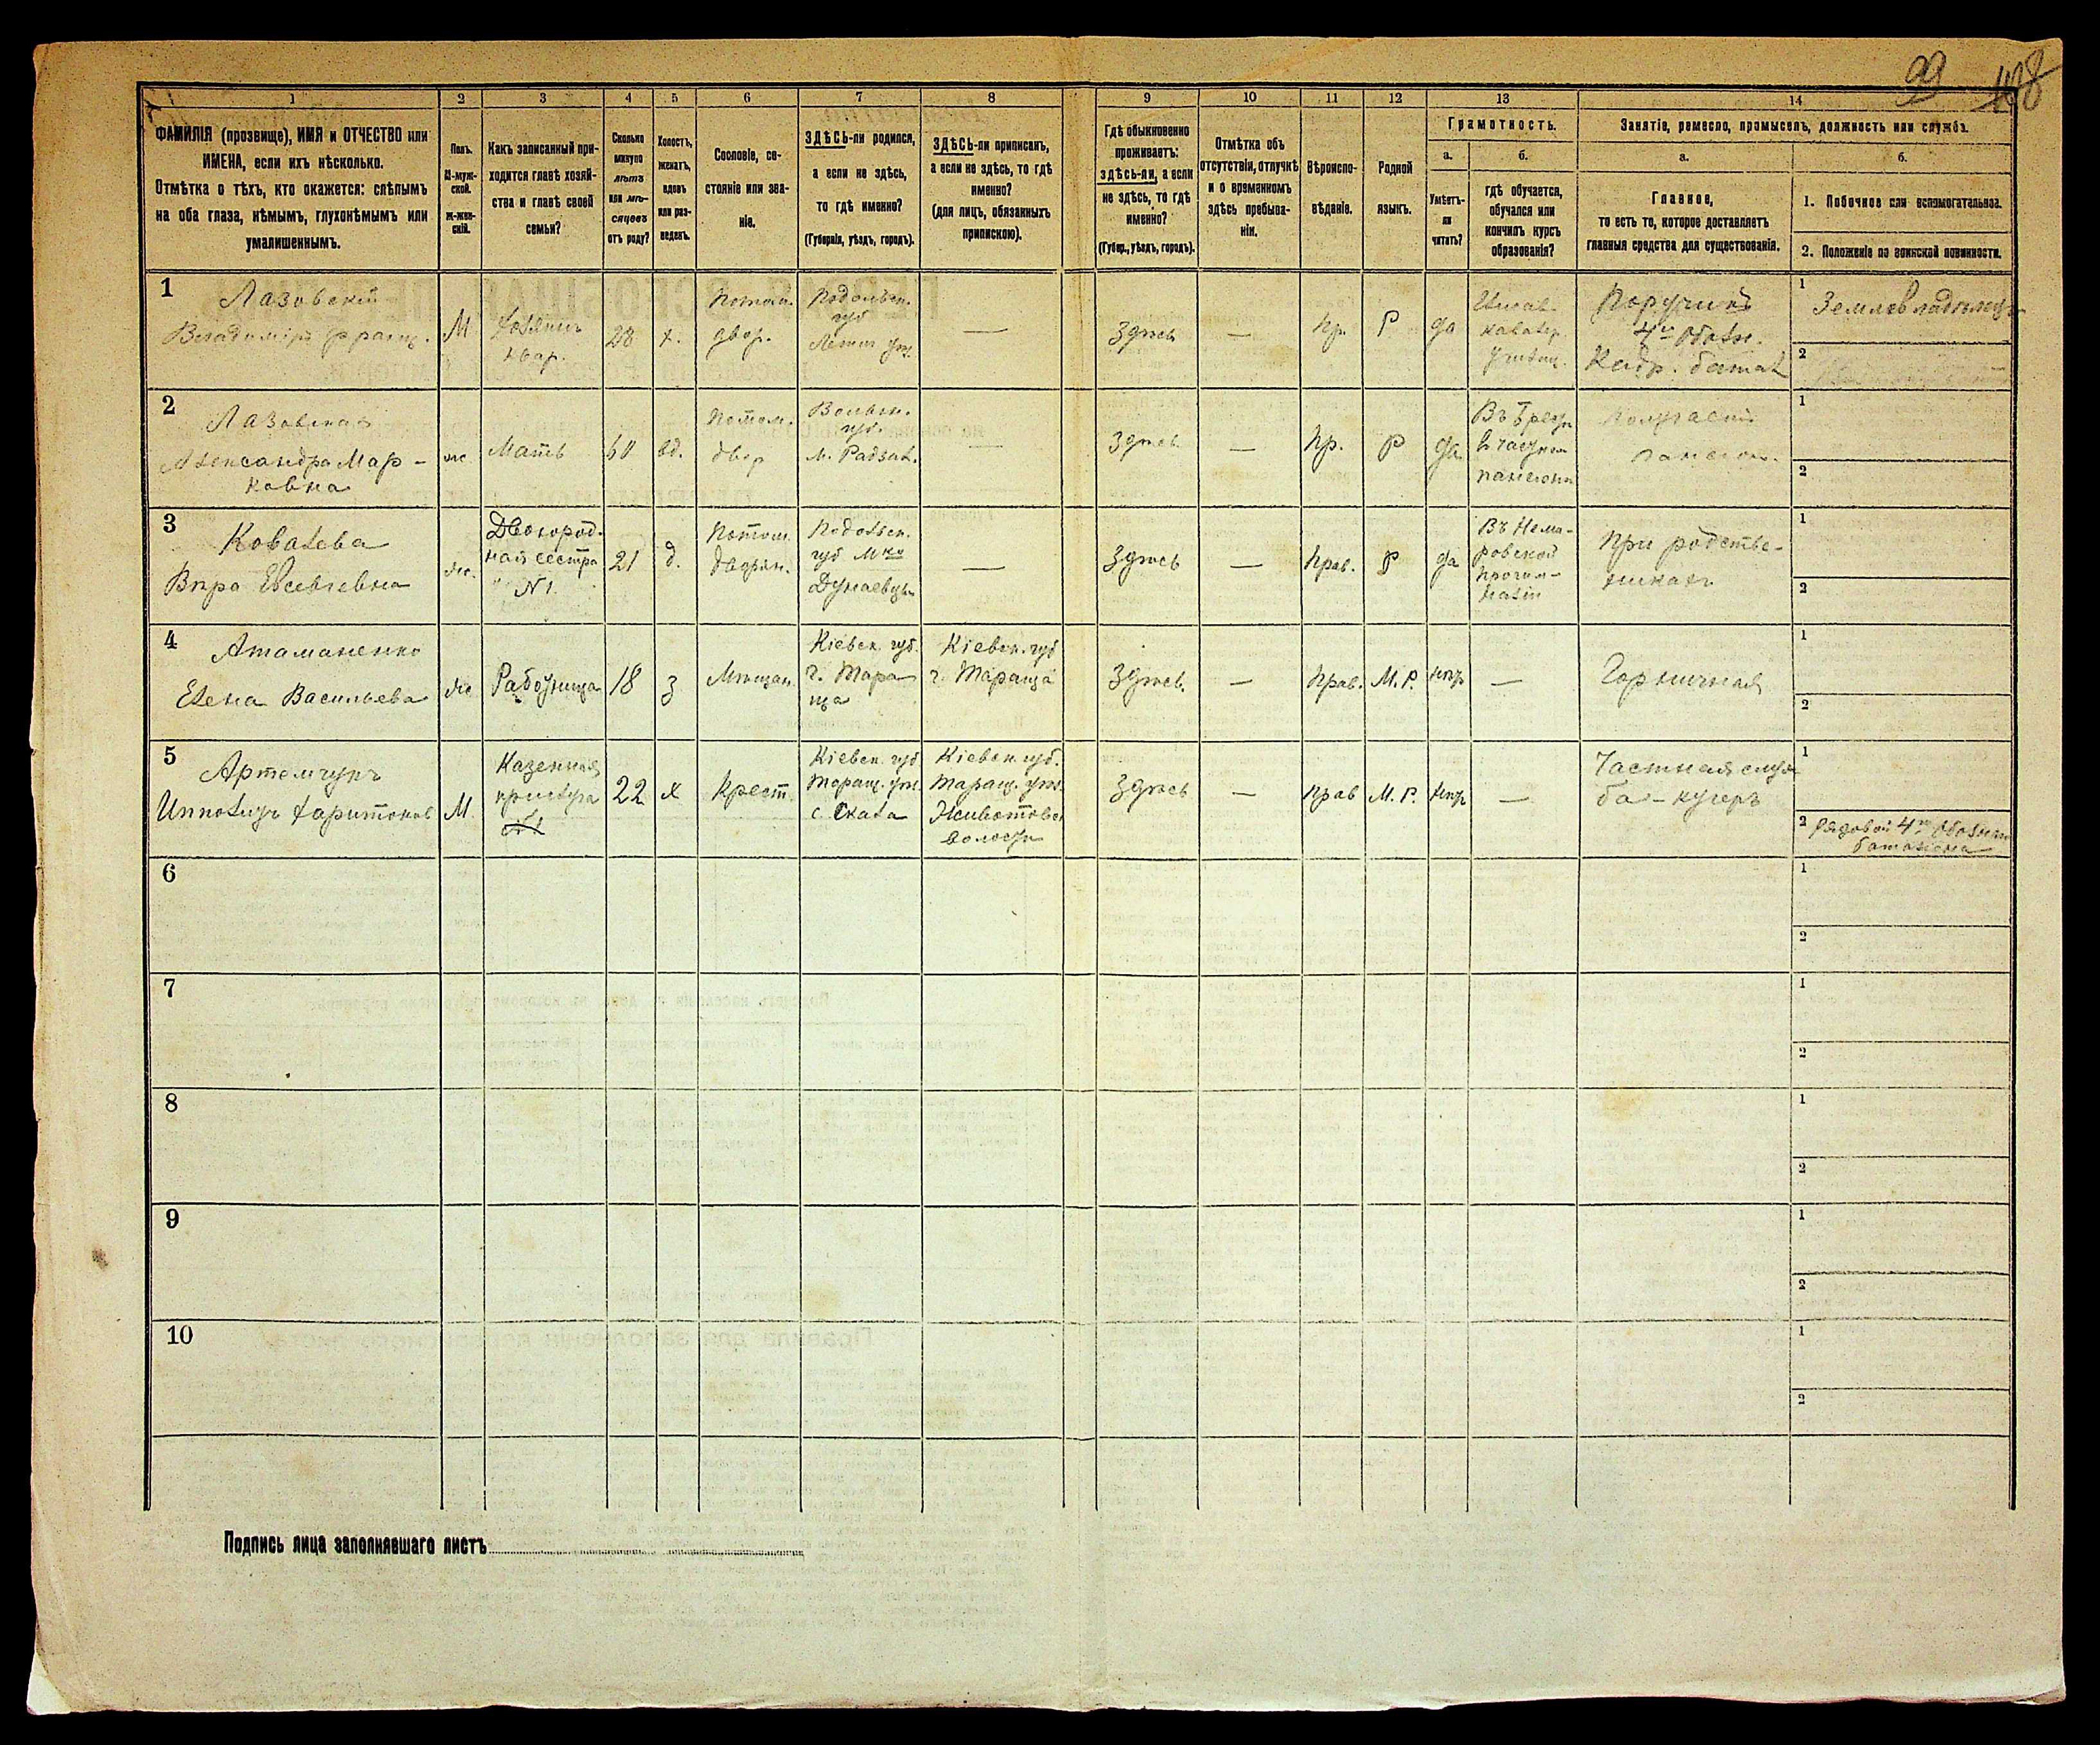 99 108
1 2 3 4 5 6 7 8 9 10 11 12 13 14
ФАМИЛІЯ (прозвище), ИМЯ и ОТЧЕСТВО или
ИМЕНА, если ихъ нѣсколько.
Отмѣтка о тѣхъ, кто окажется: слѣпымъ
на оба глаза, нѣмымъ, глухонѣмымъ или
умалишеннымъ.
Полъ.
М-муж-
ской.
ж-жен-
скій.
Какъ записанный при-
ходится главѣ хозяй-
ства и главѣ своей
семьи?
Сколько
минуло
лѣтъ
или мѣ-
сяцевъ
отъ роду?
Холостъ,
женатъ,
вдовъ
или раз-
веденъ.
Сословіе, со-
стояніе или зва-
ніе.
ЗДѢСЬ-ли родился,
а если не здѣсь,
то гдѣ именно?
(Губернія, уѣздъ, городъ).
ЗДѢСЬ-ли приписанъ,
а если не здѣсь, то гдѣ
именно?
(для лицъ, обязанныхъ
припискою).
Гдѣ обыкновенно
проживаетъ:
здѣсь-ли, а если
не здѣсь, то гдѣ
именно?
(Губер., уѣздъ, городъ).
Отмѣтка объ
отсутствіи, отлучкѣ
и о временномъ
здѣсь пребыва-
ніи.
Вѣроиспо-
вѣданіе.
Родной
языкъ.
Грамотность.
а.
Умѣетъ-
ли
читать?
б.
гдѣ обучается,
обучался или
кончилъ курсъ
образованія?
Занятіе, ремесло, промыселъ, должность или служба.
а.
Главное,
то есть то, которое доставляетъ
главныя средства для существованія.
б.
1. Побочное или вспомогательное.
2. Положеніе по воинской повинности.
1
Лазовскій
Владиміръ Франц.
М
Хозяинъ
квар.
28
х.
Потом.
двор.
Подольск.
губ
Летич уѣз.
—
Здѣсь
—
Пр.
Р
да
Елисав.
кавалер.
училищ.
Поручикъ
4го Обозн.
Кадр. батал
1
Землевладѣлецъ
2
2
Лазовская
Александра Мар-
ковна
ж
Мать
60
вд.
Потом.
двор
Волын.
губ.
м. Радзив.
—
Здѣсь.
—
Пр.
Р
да
частном
пансионѣ
Получаетъ
пансіон.
1
2
3
Ковалева
Вѣра Евсевіевна
ж.
Двоюрод-
ная сестра
№1.
21
д.
Потом.
дворян.
Подольск.
губ Мко
Дунаевцы
—
Здѣсь
—
Прав.
Р
да
Въ Неми-
ровской
прогим-
назіи
При родстве-
никахъ
1
2
4
Атаманенко
Елена Васильева
ж
Работница
18
з
Мѣщан.
Кіевск. губ.
г. Тара
ща
Кіевск. губ
г. Тараща
Здѣсь.
—
Прав.
М. Р.
нѣтъ
—
Горничная
1
2
5
Артемчукъ
Ипполитъ Харитонов
М
Казенная
прислуга
№1
22
х
Крест.
Кіевск. губ
Таращ. уѣз.
с. Скала
Кіевск. губ.
Таращ. уѣз.
Животовск
волости
Здѣсь
—
Прав
М. Р.
нѣтъ
—
Частная служ
ба - кучеръ
1
2 Рядовой 4го Обознаго
баталіона
6
1
2
7
1
2
8
1
2
9
1
2
10
1
2
Подпись лица заполнявшаго листъ